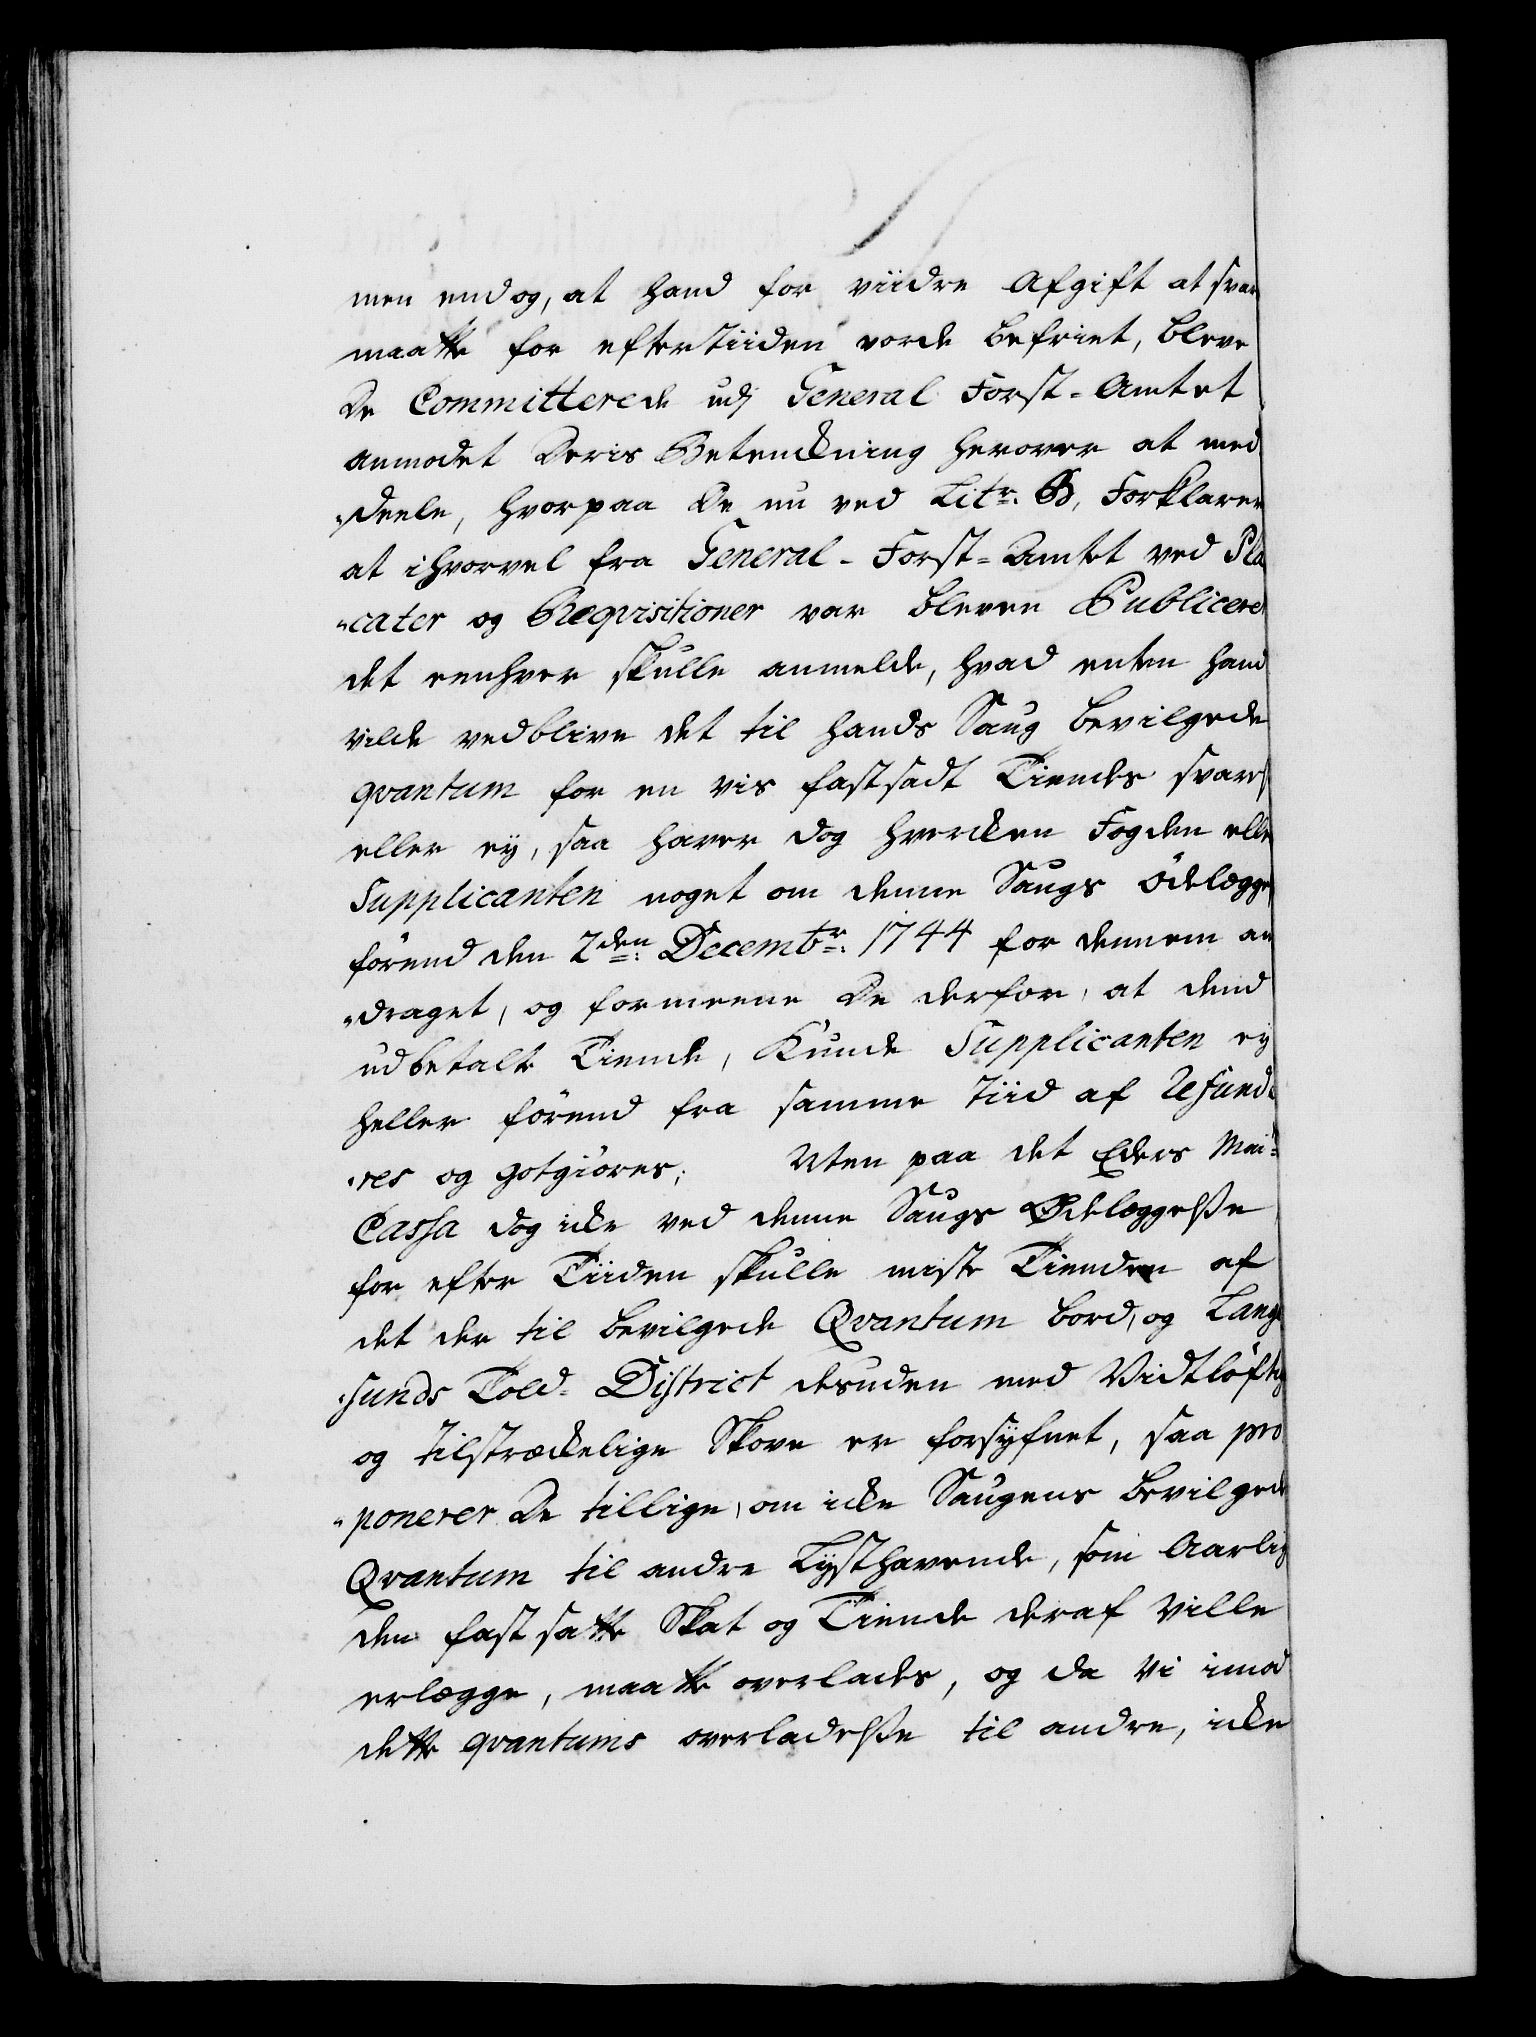 men end og, at hand for viidre Afgift at svare
maatte for eftertiiden vorde befriet, bleve
De Committerede udj General Forst-Amtet
anmodet Deris Betænckning herover at med
„deele, hvorpaa De nu ved Litr. B. Forklarer
at ihvorvel fra General-Forst-Amtet ved Pla
„cater og Reqvisitioner var bleven Publicere
det eenhver skulle anmelde, hvad enten hand
vilde vedblive det til hands Saug bevilgede
qvantum for en vis fastsadt Tiendes svare
eller ey, saa haver dog hvercken Fogden elle
Supplicanten noget om denne Saugs ödelægge
förend den 2den: Decembr: 1744 for dennem an
„draget, og formeene De derfor, at dend
udbetalte Tiende, Kunde Supplicanten ey
heller förend fra samme Tiid af Refunde
„res og gotgiöres; Uten paa det Eders Mai:
Cassa dog icke ved denne Saugs Ödelæggelsse
for efter Tiiden skulle miste Tienden af
det der til bevilgede Qvantum bord, og Lange
„sunds Told-District desuden med Vidtlöftig
og tilstræckelige Skove er forsyfnet, saa pro
„ponerer De tillige, om icke Saugens bevilgede
Qvantum til andre Lysthavende, som Aarlig
den fastsatte Skat og Tiende deraf Ville
erlægge, maatte overlades, og da Vi imod
dette qvantums overladelsse til andre, icke